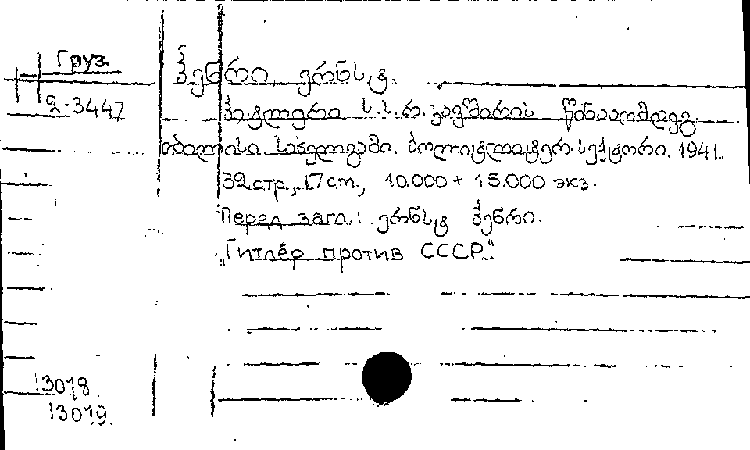 Груз.
ჰენრი, ერნსტ.
2-3447
ჰიტლერი ს.ს.რ. კავშირის წინააღმდეგ.
თბილისი. სახელგამი. პოლიტლიტერ. სექტორი. 1941.
32 стр., 17 cm., 10.000 + 15.000 экз.
Перед загл.: ერნსტ ჰენრი.
„Гитлер против СССР."
13018.
13019.